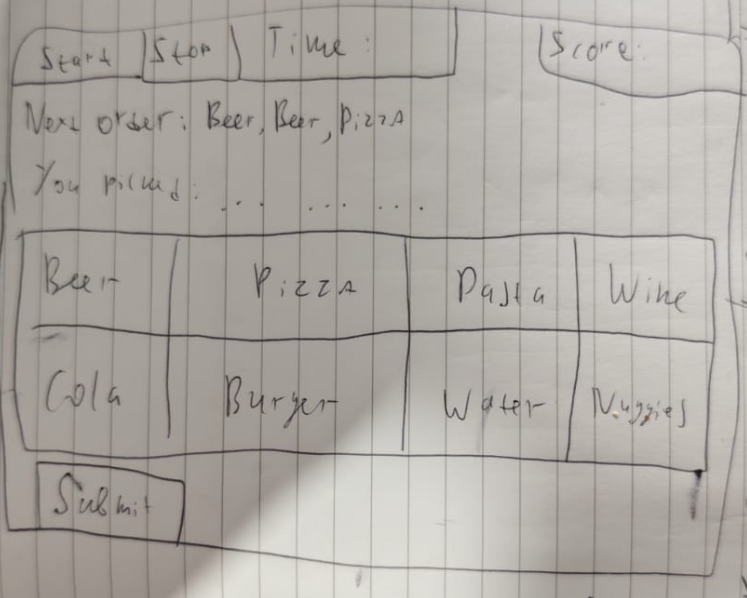 Start Stop Time: Score:
Next order: Beer, Beer, Pizza
You picked: ... ... ...
Beer Pizza Pasta Wine
Cola Burger Water Nuggies
Submit